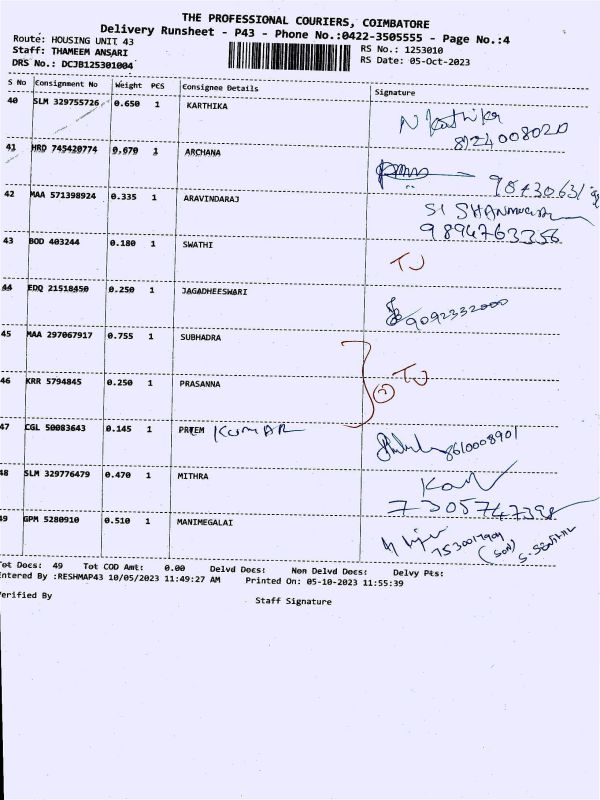 THE PROFESSIONAL COURIERS, COIMBATORE
Delivery Runsheet - P43 - Phone No.:0422-3505555 - Page No.:4
Route: HOUSING UNIT 43
RS No.: 1253010
Staff: THAMEEM ANSARI
RS Date: 05-Oct-2023
DRS No.: DCJB125301004
S No Consignment No Weight PCS Consignee Details Signature
40 SLM 329755726 0.650 1 KARTHIKA
N Karthika
8124008020
41 HRD 745420774 0.670 1 ARCHANA
42 MAA 571398924 0.335 1 ARAVINDARAJ
9894763356
43 BOD 403244 0.180 1 SWATHI
TJ
44 EDQ 21518450 0.250 1 JAGADHEESWARI
9092332000
45 MAA 297067917 0.755 1 SUBHADRA
46 KRR 5794845 0.250 1 PRASANNA
2 TJ
47 CGL 50083643 0.145 1 PREEM KUMAR
8610008901
48 SLM 329776479 0.470 1 MITHRA
49 GPM 5280910 0.510 1 MANIMEGALAI
(SON)
Tot Docs: 49 Tot COD Amt: 0.00 Delvd Docs: Non Delvd Docs: Delvy Pts:
Entered By :RESHMAP43 10/05/2023 11:49:27 AM Printed On: 05-10-2023 11:55:39
Verified By Staff Signature